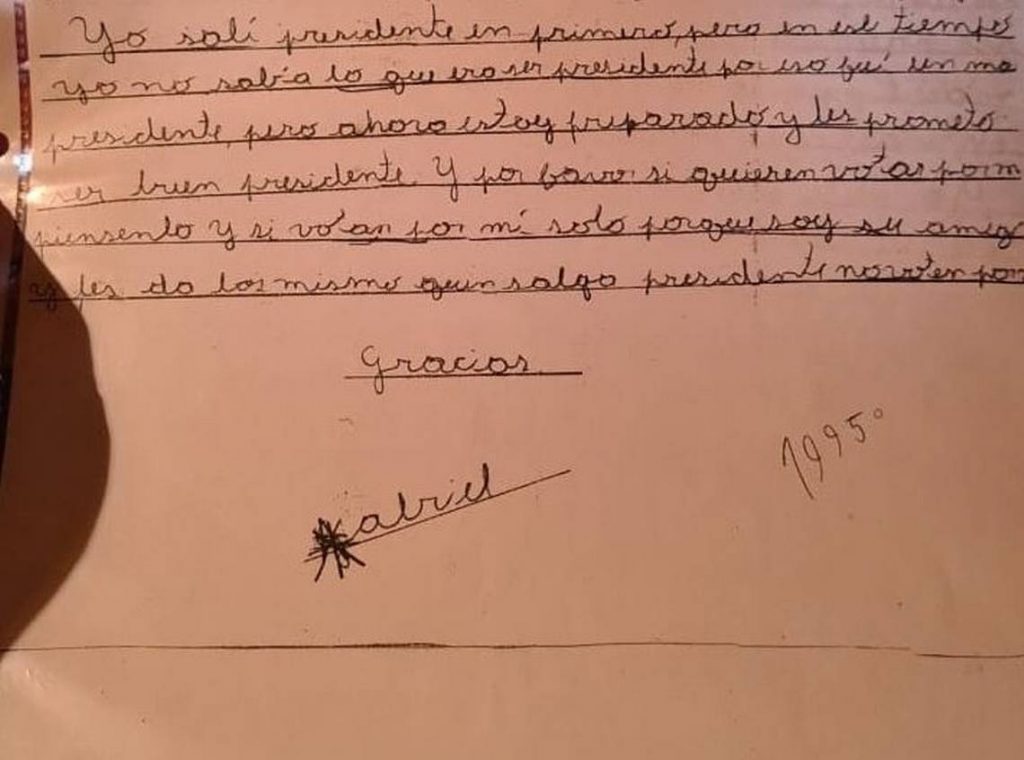 Yo salí presidente en primero, pero en ese tiempo
yo no sabía lo que era ser presidente por eso fuí un ma
presidente, pero ahora estoy preparado y les prometo
ser buen presidente. Y por favor si quieren votar por m
piensenlo y si votan por mí solo porque soy su amigo
y les da los mismo quien salgo presidente no voten por
Gracias
Gabriel
1995°